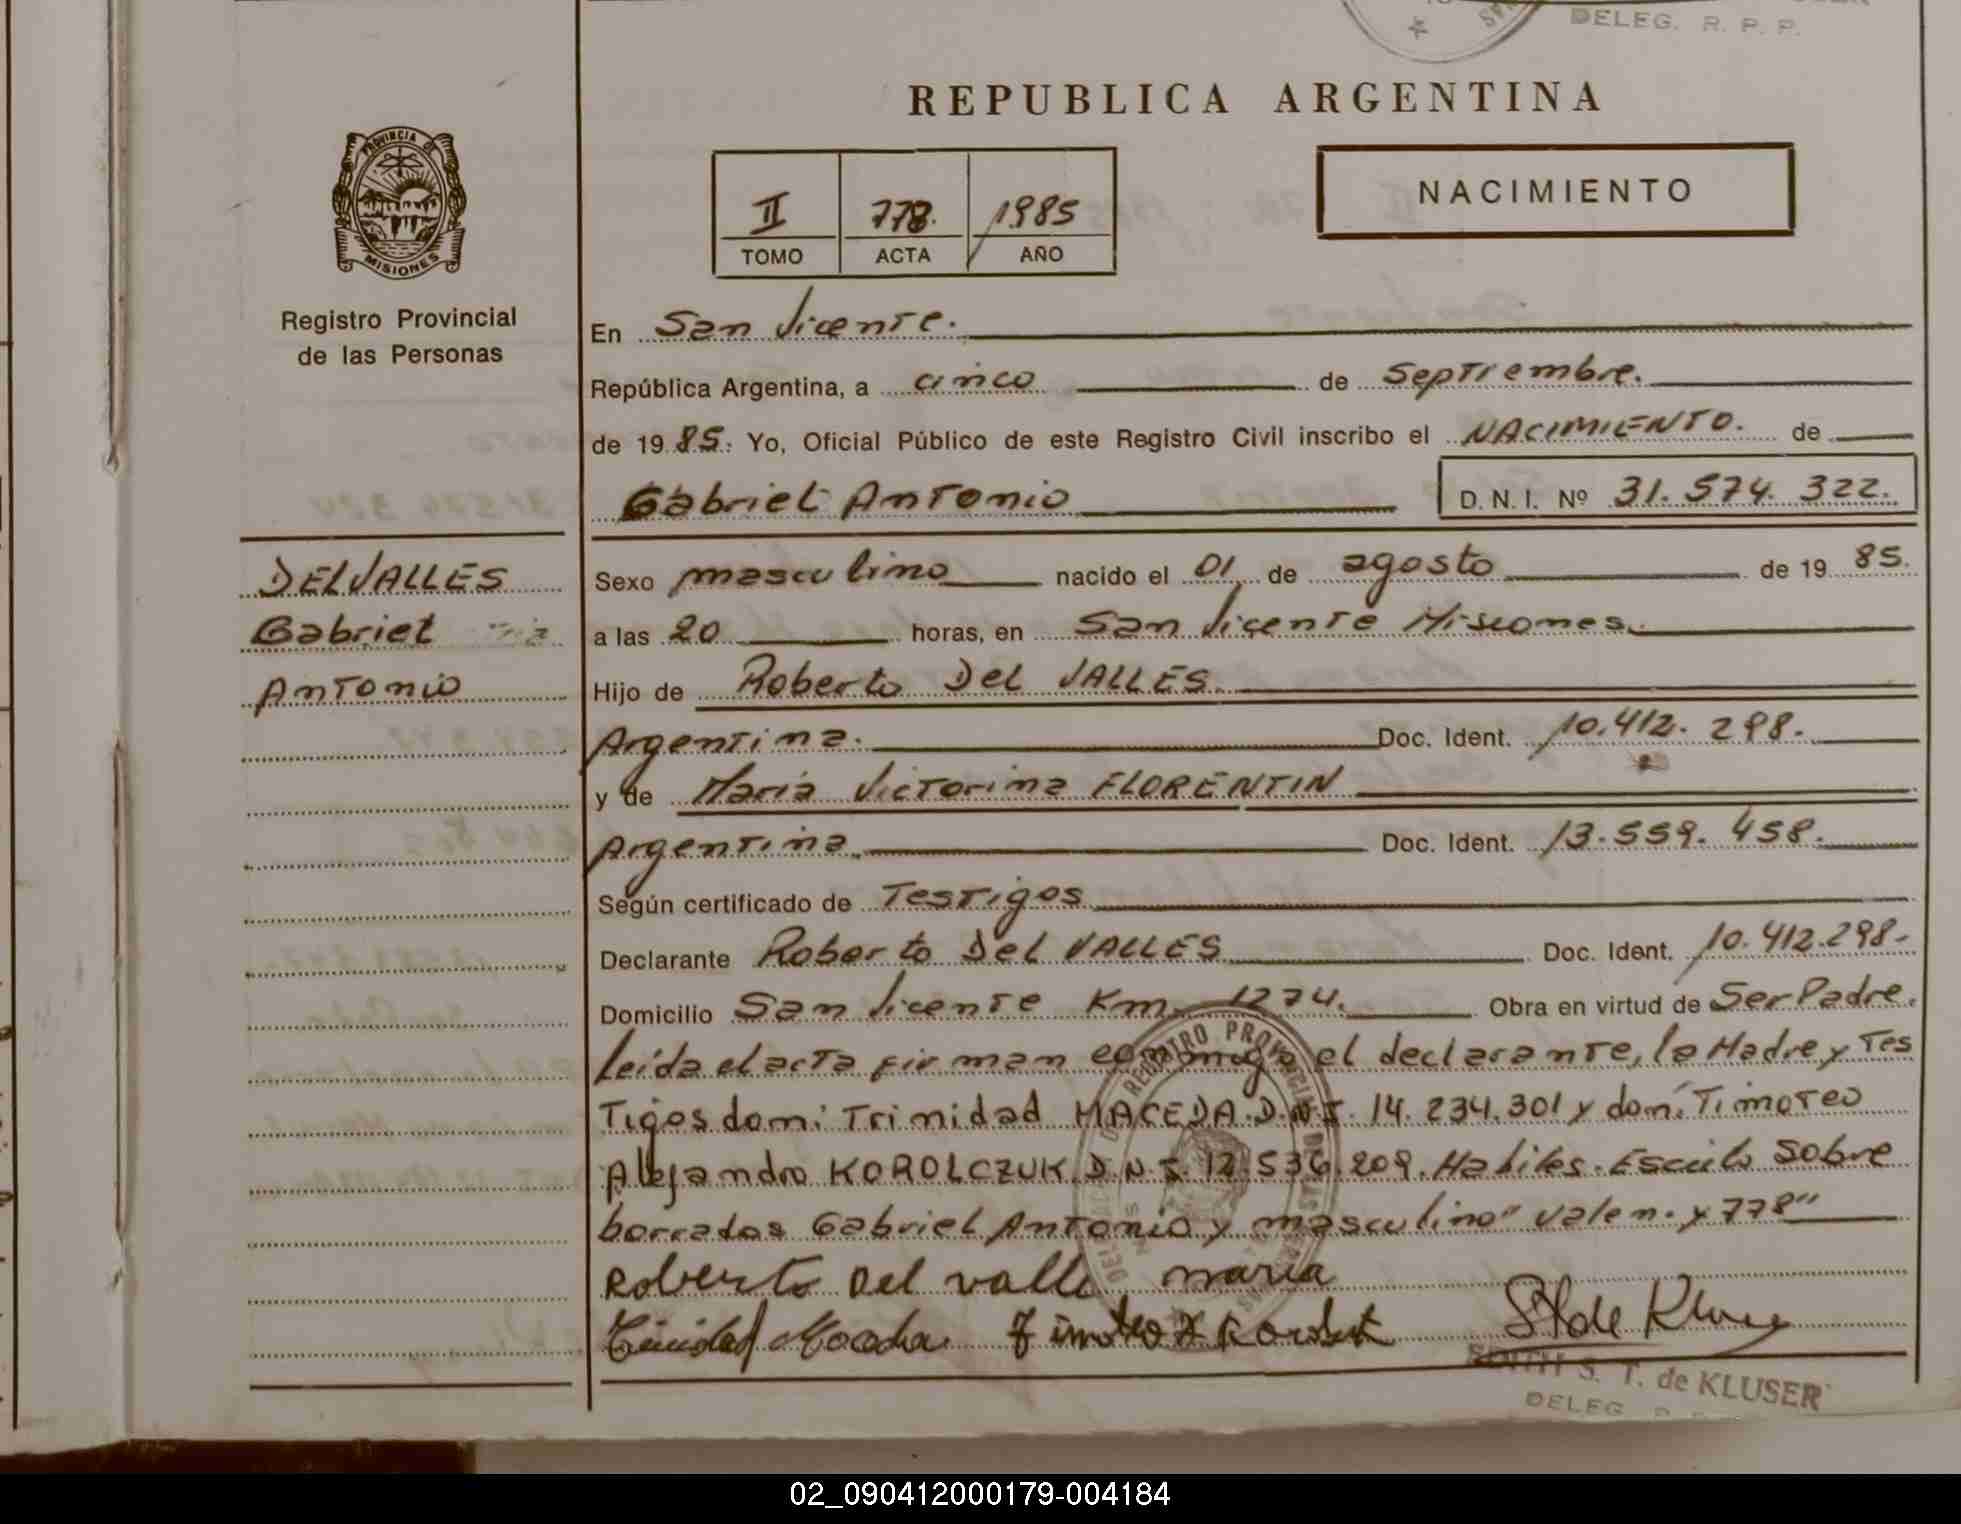 DELEG. R. P. P.
REPUBLICA ARGENTINA
PROVINCIA DE
MISIONES
Registro Provincial
de las Personas
II 778. 1985
TOMO ACTA AÑO
NACIMIENTO
En San Vicente.
República Argentina, a cinco de Septiembre.
de 19 85. Yo, Oficial Público de este Registro Civil inscribo el NACIMIENTO. de
Gabriel Antonio D. N. I. Nº 31.574.322.
DELVALLES
Gabriel
Antonio
Sexo masculino nacido el 01 de agosto de 19 85.
a las 20 horas, en San Vicente Misiones.
Hijo de Roberto Del VALLES.
Argentina. Doc. Ident. 10.412.298.
y de María Victorina FLORENTIN
Argentina. Doc. Ident. 13.559.458.
Según certificado de Testigos
Declarante Roberto Del VALLES Doc. Ident. 10.412.298.
Domicilio San Vicente Km. 1274. Obra en virtud de Ser Padre.
leída el acta firman conmigo el declarante, la Madre y Tes
Tigos don: Trinidad MACEDA. D.N.I. 14.234.301 y don: Timoteo
Alejandro KOROLCZUK D.N.I. 12.536.209. Habiles. Escrito Sobre
borrados Gabriel Antonio y masculino" valen. y 778"
Roberto Del valle maria
REGISTRO PROVINCIAL DE LAS PERSONAS
S. T. de KLUSER
DELEG.
02_090412000179-004184